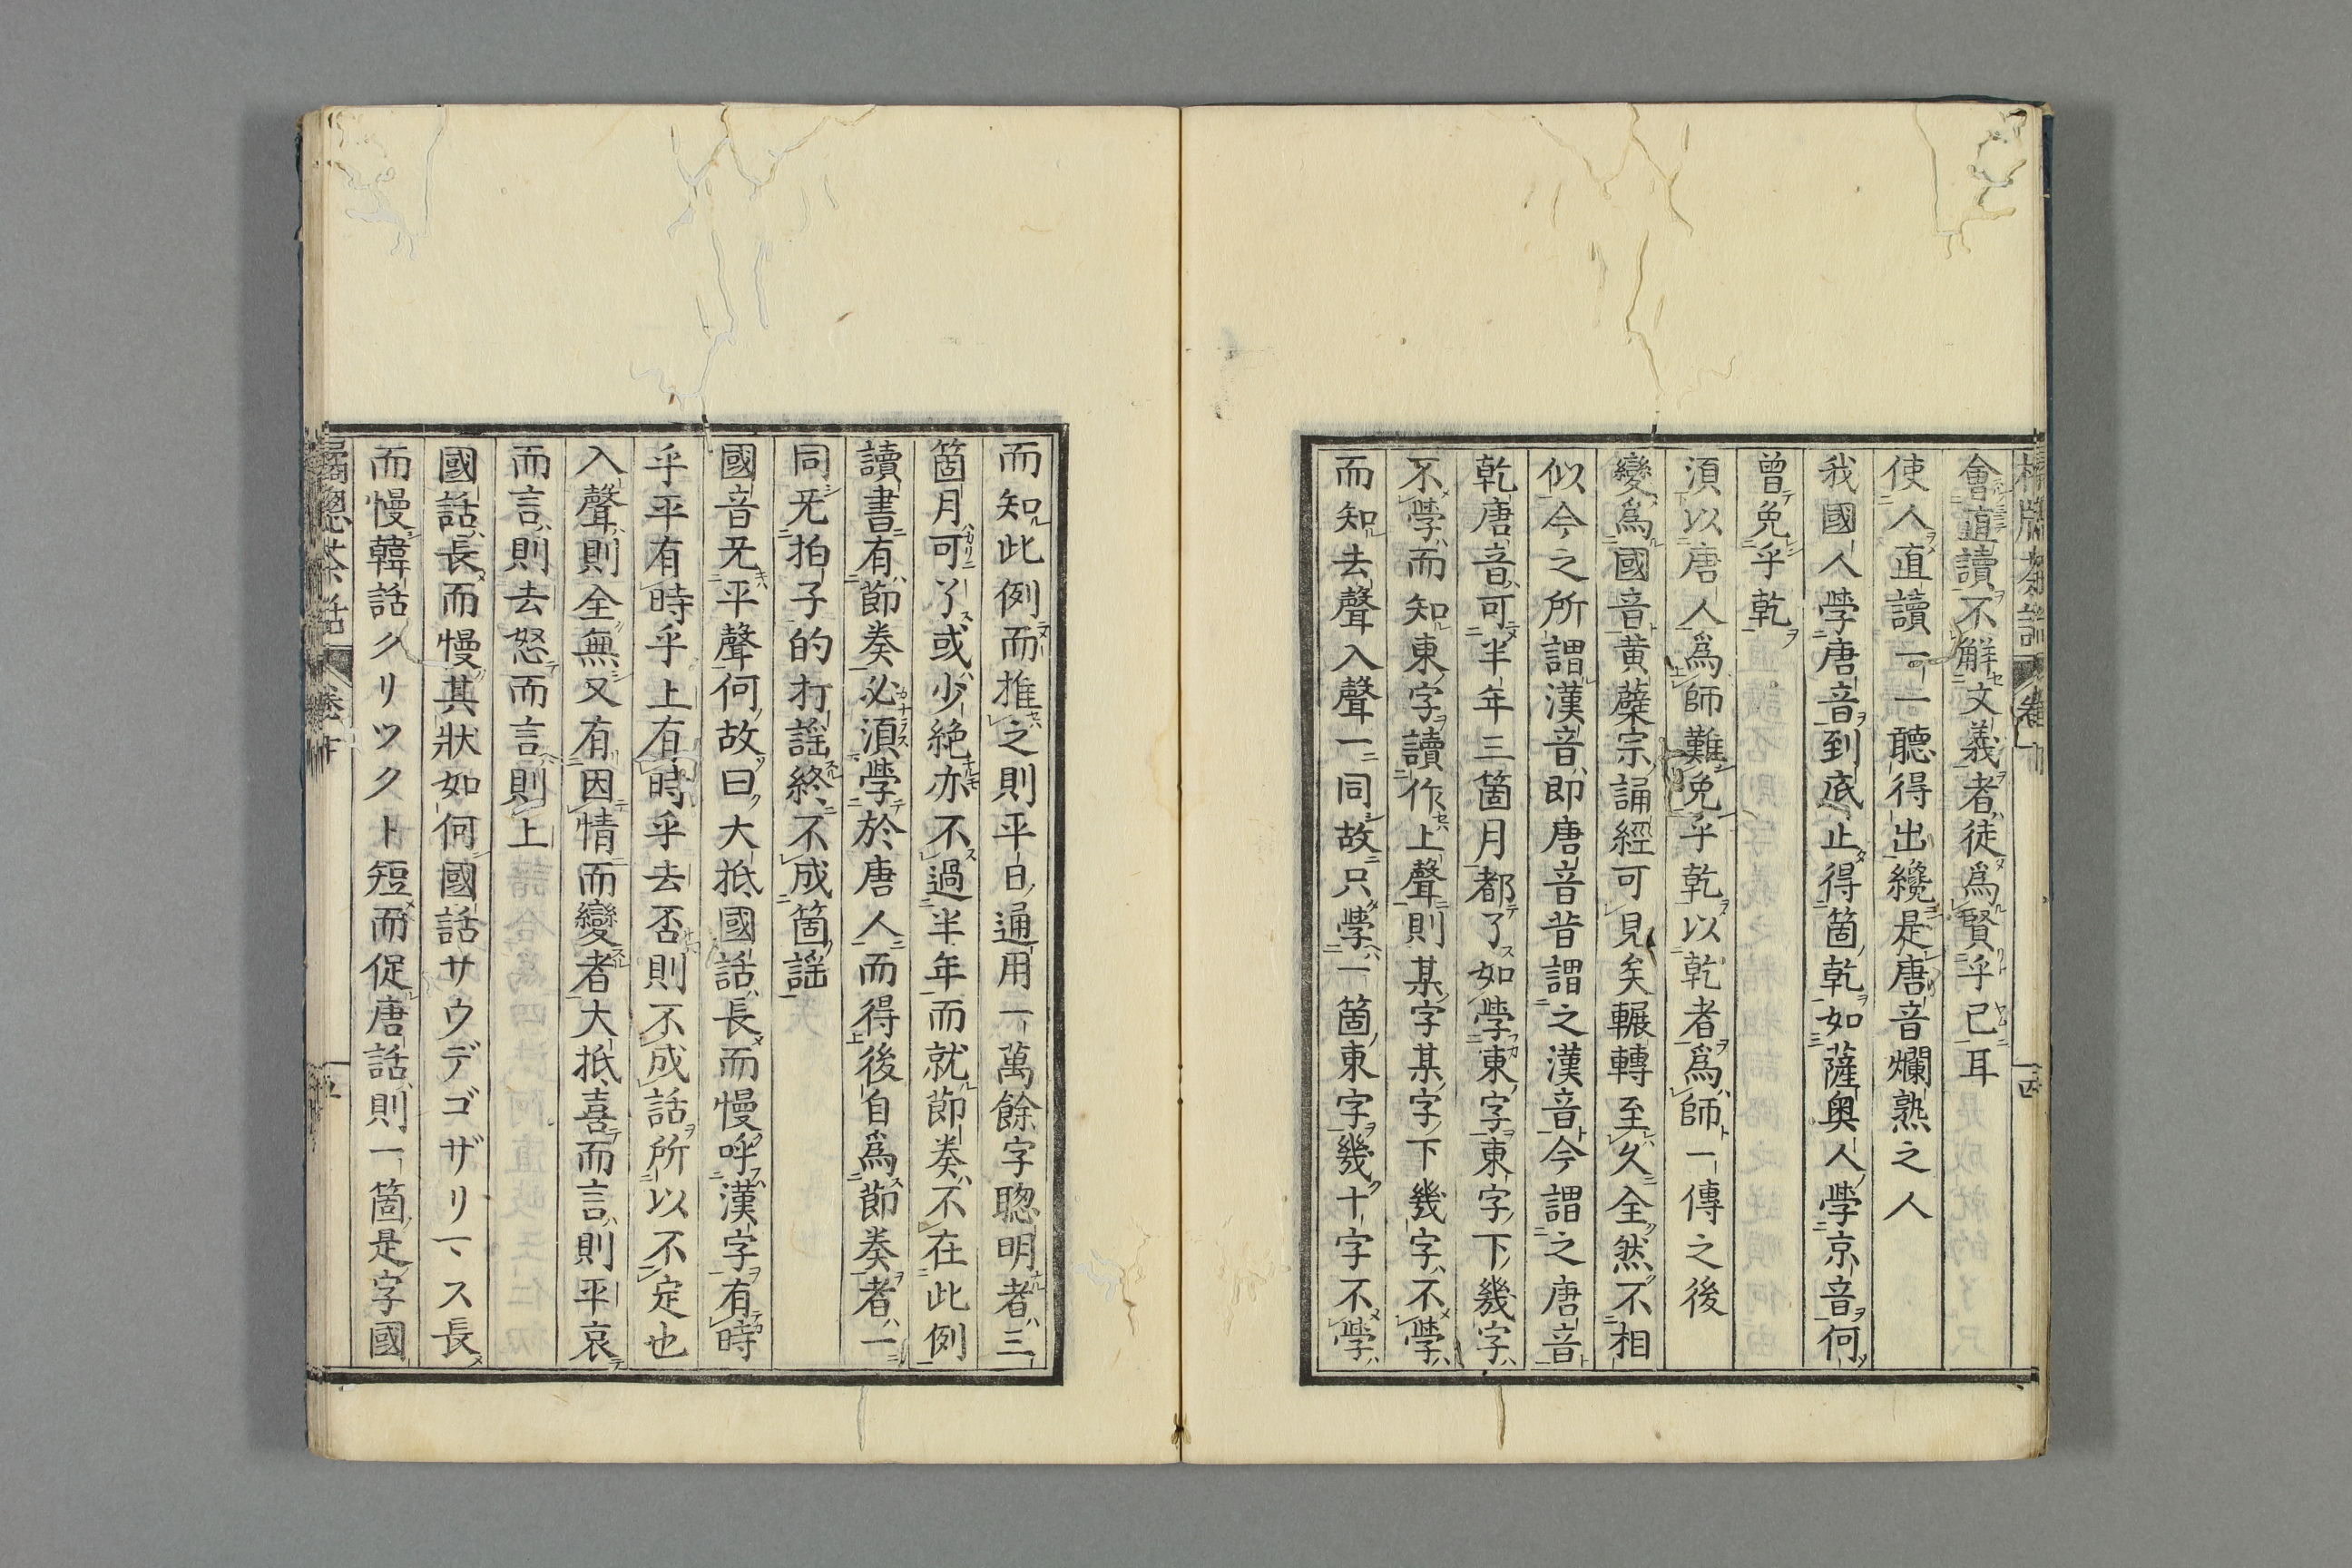 會直讀不解文義者徒爲賢乎已耳
使人直讀一一聽得出纔是唐音爛熟之人
我國人學唐音到底止得箇乾如薩奧人學京音何
曾免乎乾
須以唐人爲師難免乎乾以乾者爲師一傳之後
變爲國音黃蘗宗誦經可見矣輾轉至久全然不相
似今之所謂漢音即唐音昔謂之漢音今謂之唐音
乾唐音可半年三箇月都了如學東字東字下幾字
不學而知東字讀作上聲則某字某字下幾字不學
而知去聲入聲一同故只學一箇東字幾十字不學
而知此例而推之則平日通用一萬餘字聰明者三
箇月可了或少絶亦不過半年而就節奏不在此例
讀書有節奏必須學於唐人而得後自爲節奏者一
同旡拍子的打謡終不成箇謡
國音旡平聲何故曰大抵國話長而慢呼漢字有時
乎平有時乎上有時乎去否則不成話所以不定也
入聲則全無又有因情而變者大抵喜而言則平哀
而言則去怒而言則上
國話長而慢其狀如何國話サウデゴザリーヽス長
而慢韓話クリツクト短而促唐話則一箇是字國